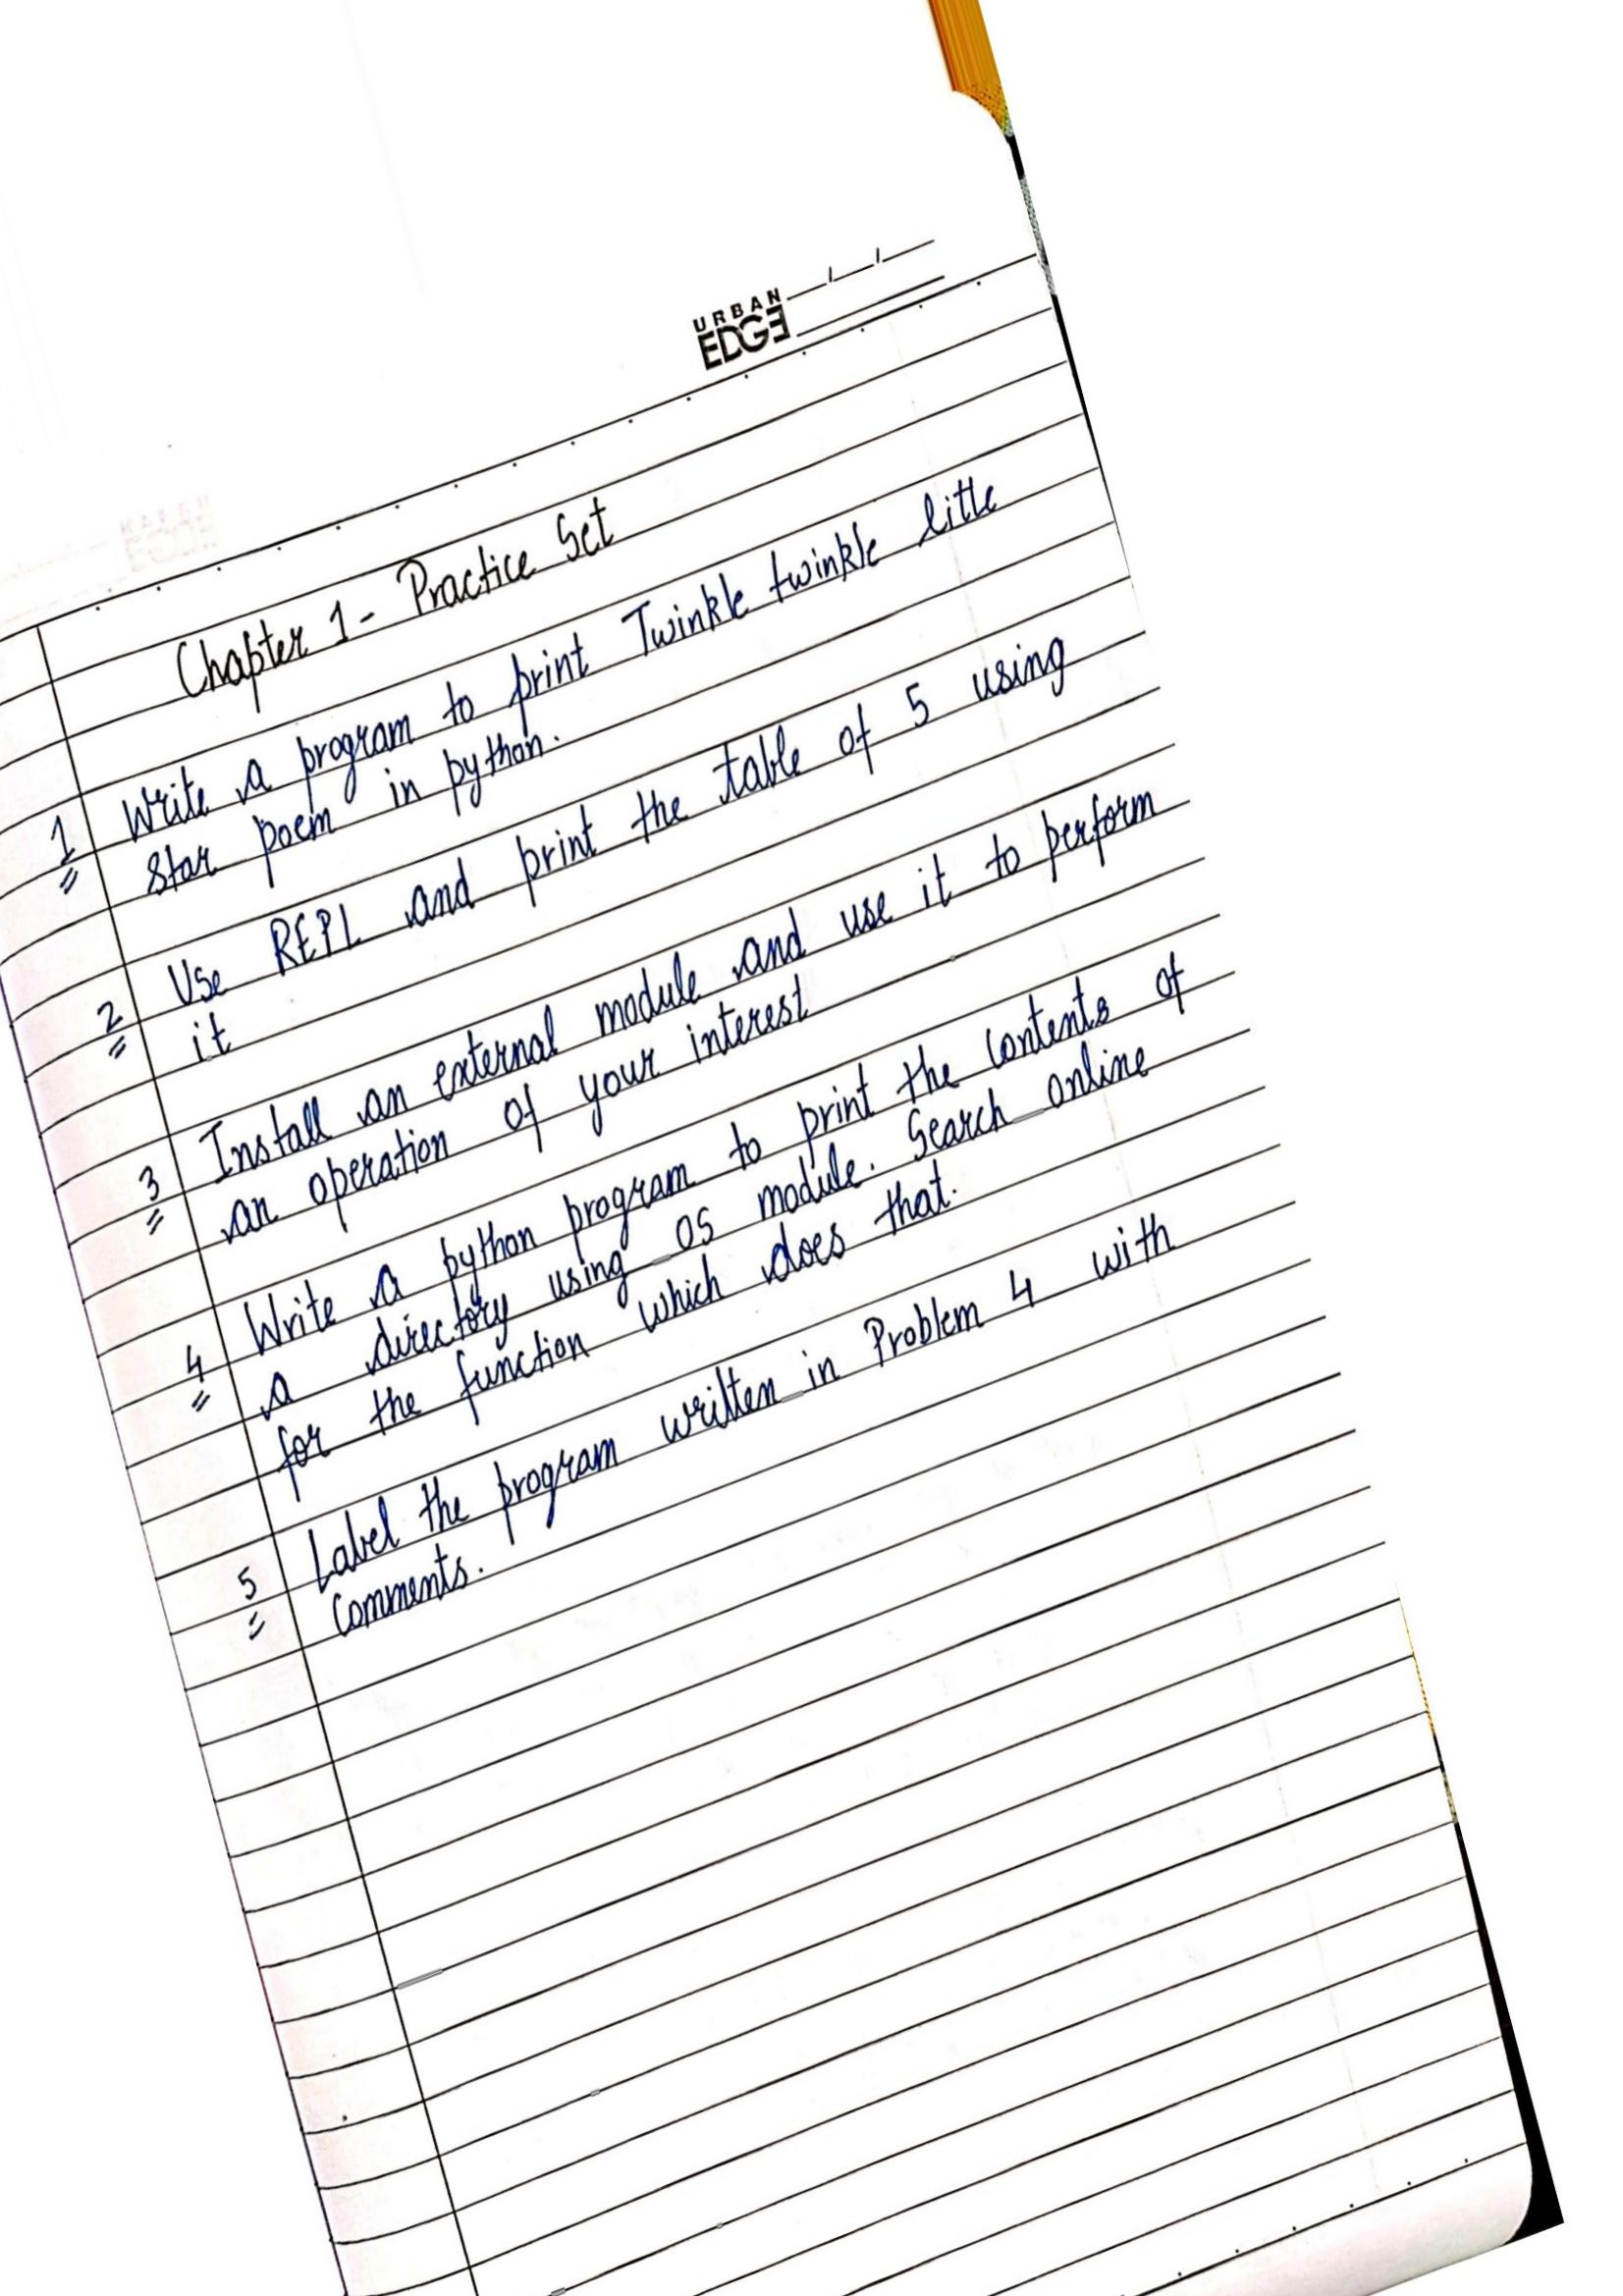 URBAN
EDGE
Chapter 1 - Practice Set
1 Write a program to print Twinkle twinkle little
star poem in python.
2 Use REPL and print the table of 5 using
it
3 Install an external module and use it to perform
an operation of your interest
4 Write a python program to print the contents of
a directory using OS module. Search online
for the function which does that.
5 Label the program written in Problem 4 with
comments.